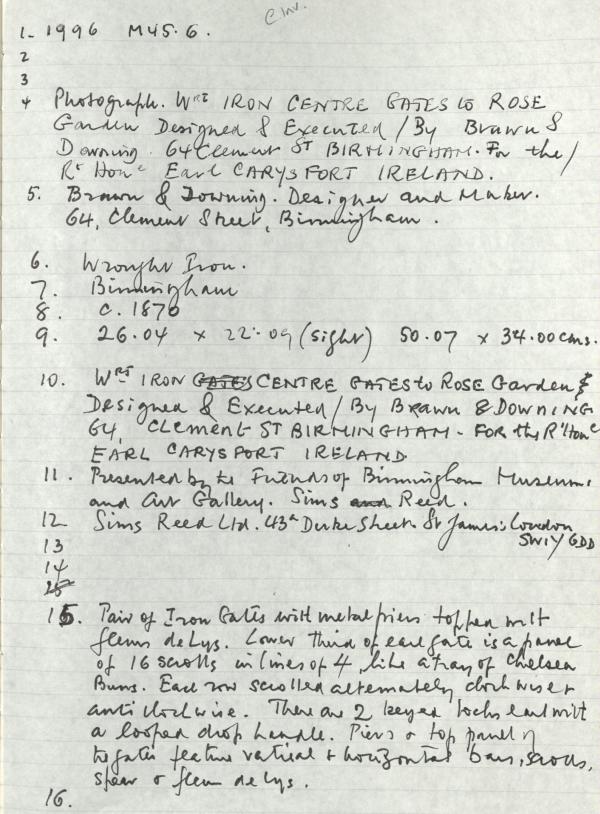 C Inv.
1. 1996 M45.6.
2
3
4 Photograph. WRT IRON CENTRE GATES to ROSE
Garden Designed & Executed / By Brawn &
Downing. 64 Clement ST BIRMINGHAM. For the /
Rt Honc Earl CARYSFORT IRELAND.
5. Brawn & Downing. Designer and Maker.
64, Clement Street, Birmingham.
6. Wrought Iron.
7. Birmingham
8. c. 1870
9. 26.04 x 22.09 (sight) 50.07 x 34.00 cms.
10. WRT IRON GATES CENTRE GATES to ROSE Garden &
Designed & Executed / By Brawn & DOWNING
64, CLEMENT ST BIRMINGHAM - FOR the Rt Honc
EARL CARYSFORT IRELAND
11. Presented by the Friends of Birmingham Museum,
and Art Gallery. Sims and Reed.
12 Sims Reed Ltd. 43a Duke Street. St James: London
SW1Y 6DD
13
14
15. Pair of Iron Gates with metal piers topped with
fleurs de Lys. Lower third of each gate is a panel
of 16 scrolls in lines of 4, like a tray of Chelsea
Buns. Each row scrolled alternately clockwise &
anti clockwise. There are 2 keyed locks each with
a looped drop handle. Piers & top panel of
the gates feature vertical & horizontal bars, scrolls,
spear & fleur de lys.
16.